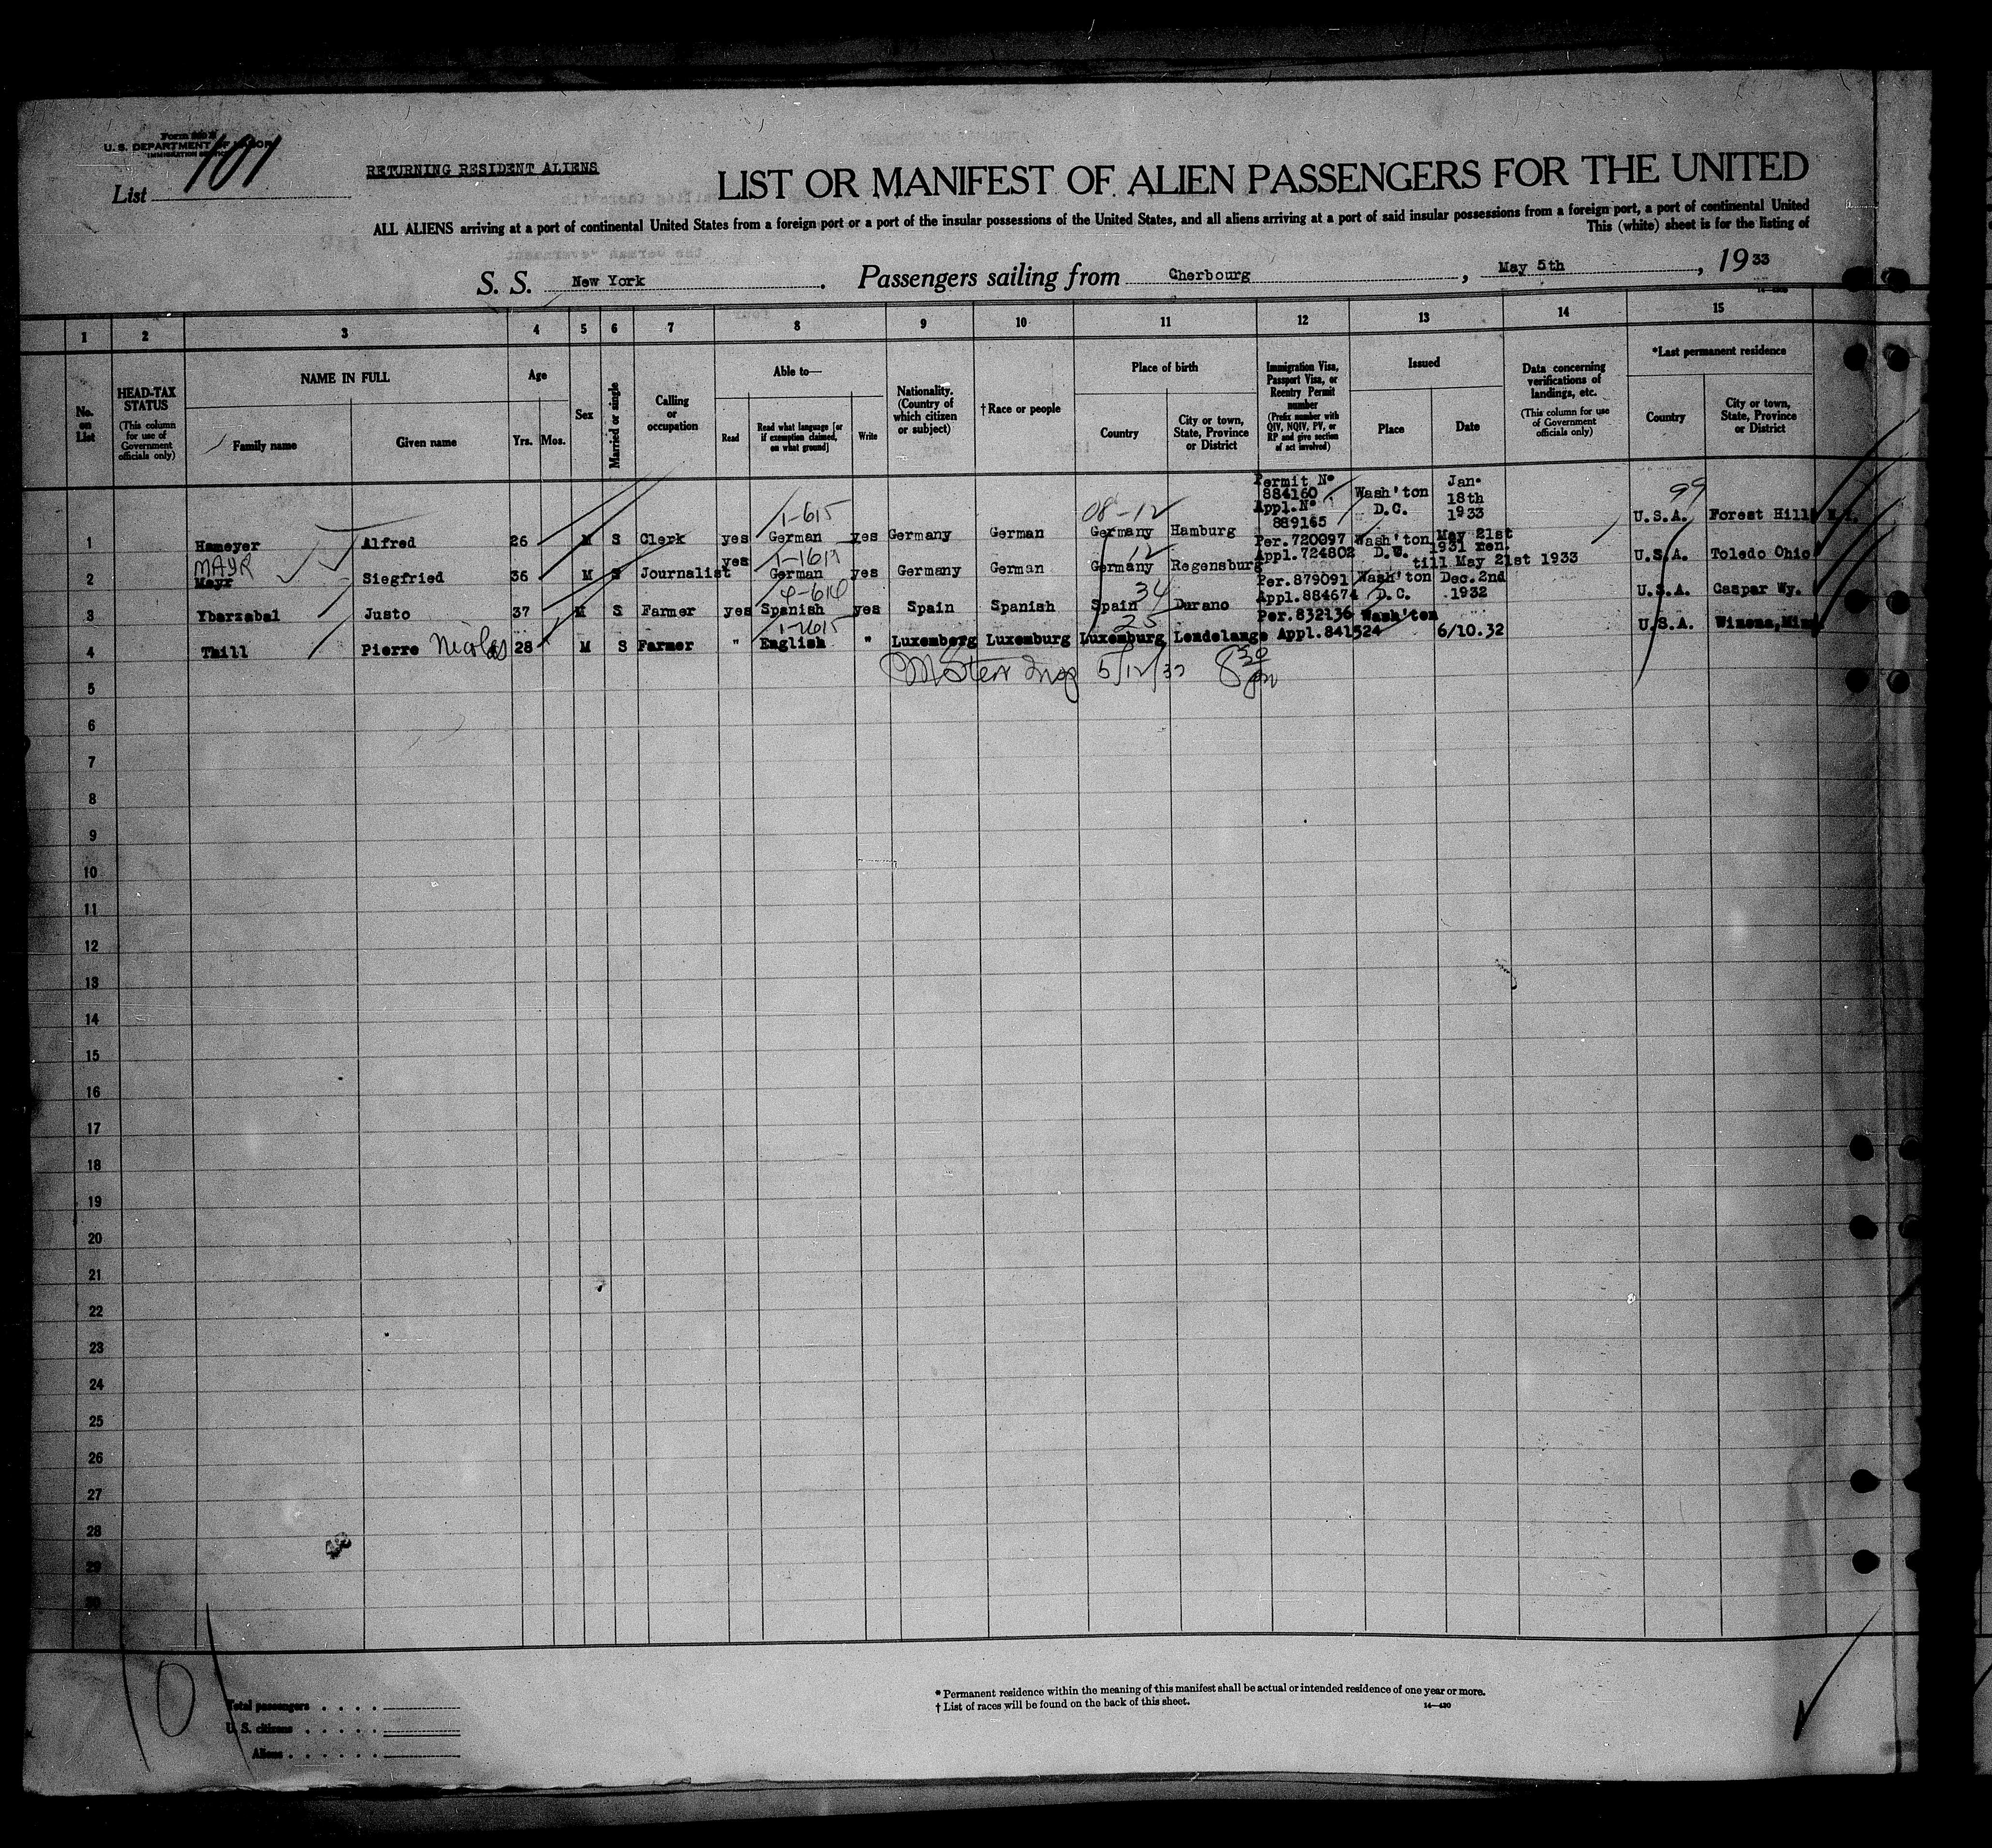 Form 500 B
U. S. DEPARTMENT OF LABOR
IMMIGRATION SERVICE
List 101
RETURNING RESIDENT ALIENS
LIST OR MANIFEST OF ALIEN PASSENGERS FOR THE UNITED
ALL ALIENS arriving at a port of continental United States from a foreign port or a port of the insular possessions of the United States, and all aliens arriving at a port of said insular possessions from a foreign port, a port of continental United
This (white) sheet is for the listing of
S. S. New York. Passengers sailing from Cherbourg, May 5th, 1933
1 2 3 4 5 6 7 8 9 10 11 12 13 14 15
No. on List
HEAD-TAX STATUS (This column for use of Government officials only)
NAME IN FULL
Family name
Given name
Age
Yrs. Mos.
Sex
Married or single
Calling or occupation
Able to—
Read
Read what language [or if exemption claimed, on what ground]
Write
Nationality. (Country of which citizen or subject)
†Race or people
Place of birth
Country
City or town, State, Province or District
Immigration Visa, Passport Visa, or Reentry Permit number (Prefix number with QIV, NQIV, PV, or RP and give section of act involved)
Issued
Place
Date
Data concerning verifications of landings, etc. (This column for use of Government officials only)
*Last permanent residence
Country
City or town, State, Province or District
1 Hameyer Alfred 26 M S Clerk yes 1-615 German yes Germany German 08-12 Germany Hamburg Permit No 884160 Appl.No 889165 Wash'ton D.C. Jan. 18th 1933 99 U.S.A. Forest Hill N.Y.
2 MAYR Mayr Siegfried 36 M S Journalist yes German yes Germany German 12 Germany Regensburg Per.720097 Appl.724802 Wash'ton D.C. May 21st 1931 ren. till May 21st 1933 U.S.A. Toledo Ohio
3 Ybarzabal Justo 37 M S Farmer yes Spanish yes Spain Spanish 34 Spain Durano Per.879091 Appl.884674 Wash'ton D.C. Dec.2nd 1932 U.S.A. Caspar Wy.
4 Thill Pierre Nicolas 28 M S Farmer " English " Luxemberg Luxemburg 25 Luxemburg Lendelange Per.832136 Appl.841524 Wash'ton 6/10.32 U.S.A. Winona, Minn
5/12/33 8 30
5
6
7
8
9
10
11
12
13
14
15
16
17
18
19
20
21
22
23
24
25
26
27
28
29
30
101
Total passengers . . . .
U. S. citizens . . . . .
Aliens . . . . . .
* Permanent residence within the meaning of this manifest shall be actual or intended residence of one year or more.
† List of races will be found on the back of this sheet.
14—430